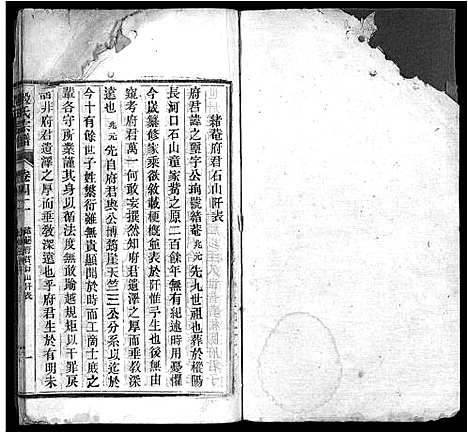 緒菴府君石山阡表
府君諱之璽字公珣號緒菴兆元先九世祖也葬於樅陽
長河口石山童家嘴之原二百餘年未有紀述時用憂懼
今歲纂修家乘敬載梗概並表於阡惟予生也後無由
窺考府君萬一何敢妄撰而府君遺澤之厚而垂教深
遠也兆元先自府君與公博筠崖天竺三公分系以迄於
今十有餘世子姓繁衍雖無貴顯聞於時而工商士庶之
輩各守所業謹其身以循法度無敢踰越規矩以干罪戾
非府君遺澤之厚而垂教深遠也乎府君生於有明末
氏宗譜
卷四
緒菴府君石山阡表